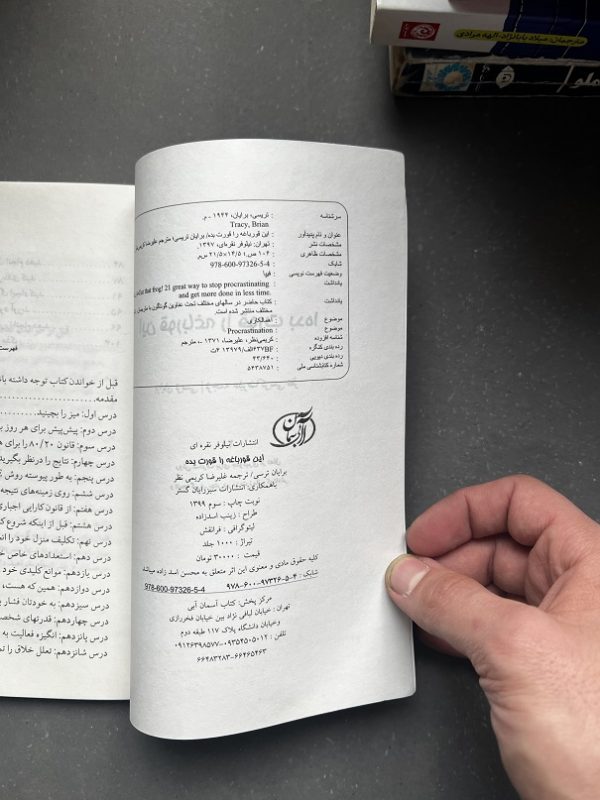 مترجمان: میلاد بابانژاد، الهه مرادی
سرشناسه : تریسی، برایان، ۱۹۴۴ - م.
Tracy, Brian
عنوان و نام‌پدیدآور : این قورباغه را قورت بده/ برایان تریسی؛ مترجم علیرضا کریمی
مشخصات نشر : تهران: نیلوفر نقره‌ای، ۱۳۹۷.
مشخصات ظاهری : ۱۰۴ ص.؛ ۱۴/۵×۲۱/۵ س‌م.
شابک : 978-600-97326-5-4
وضعیت فهرست نویسی : فیپا
یادداشت : eat that frog! 21 great way to stop procrastinating
and get more done in less time.
یادداشت : کتاب حاضر در سالهای مختلف تحت عناوین گوناگون با مترجمان
مختلف منتشر شده است.
موضوع : اهمالکاری
موضوع : Procrastination
شناسه افزوده : کریمی‌نظر، علیرضا، ۱۳۷۱ -، مترجم
رده بندی کنگره
رده بندی دیویی
شماره کتابشناسی ملی : ۵۴۳۸۷۵۱
انتشارات نیلوفر نقره ای
این قورباغه را قورت بده
برایان ترسی/ ترجمه علیرضا کریمی نظر
باهمکاری: انتشارات سبزرایان گستر
نوبت چاپ : سوم ۱۳۹۹
طراح : زینب اسدزاده
لیتوگرافی : فرانقش
تیراژ : ۱۰۰۰ جلد
قیمت : ۳۰۰۰۰ تومان
کلیه حقوق مادی و معنوی این اثر متعلق به محسن اسد زاده میباشد
شابک : ۴-۵-۹۷۳۲۶-۶۰۰-۹۷۸ 978-600-97326-5-4
مرکز پخش: کتاب آسمان آبی
تهران: خیابان لبافی نژاد بین خیابان فخررازی
وخیابان دانشگاه پلاک ۱۱۷ طبقه دوم
تلفن : ۰۹۳۵۴۵۰۵۰۱۲-۰۹۱۲۶۳۹۸۵۷۷
۶۶۴۶۵۴۶۳-۶۶۴۸۳۲۸۳
فهرست
قبل از خواندن کتاب توجه داشته
مقدمه
درس اول: میز را بچینید
درس دوم: پیش‌پیش برای هر روز
درس سوم: قانون ۸۰/۲۰ را برای
درس چهارم: نتایج را درنظر بگیرید
درس پنجم: به طور پیوسته روش
درس ششم: روی زمینه‌های نتیجه
درس هفتم: از قانون کارایی اجباری
درس هشتم: قبل از اینکه شروع
درس نهم: تکلیف منزل خود را
درس دهم: استعدادهای خاص
درس یازدهم: موانع کلیدی خود
درس دوازدهم: همین که هست،
درس سیزدهم: به خودتان فشار
درس چهاردهم: قدرتهای
درس پانزدهم: انگیزه فعالیت به
درس شانزدهم: تعلل خلاق را